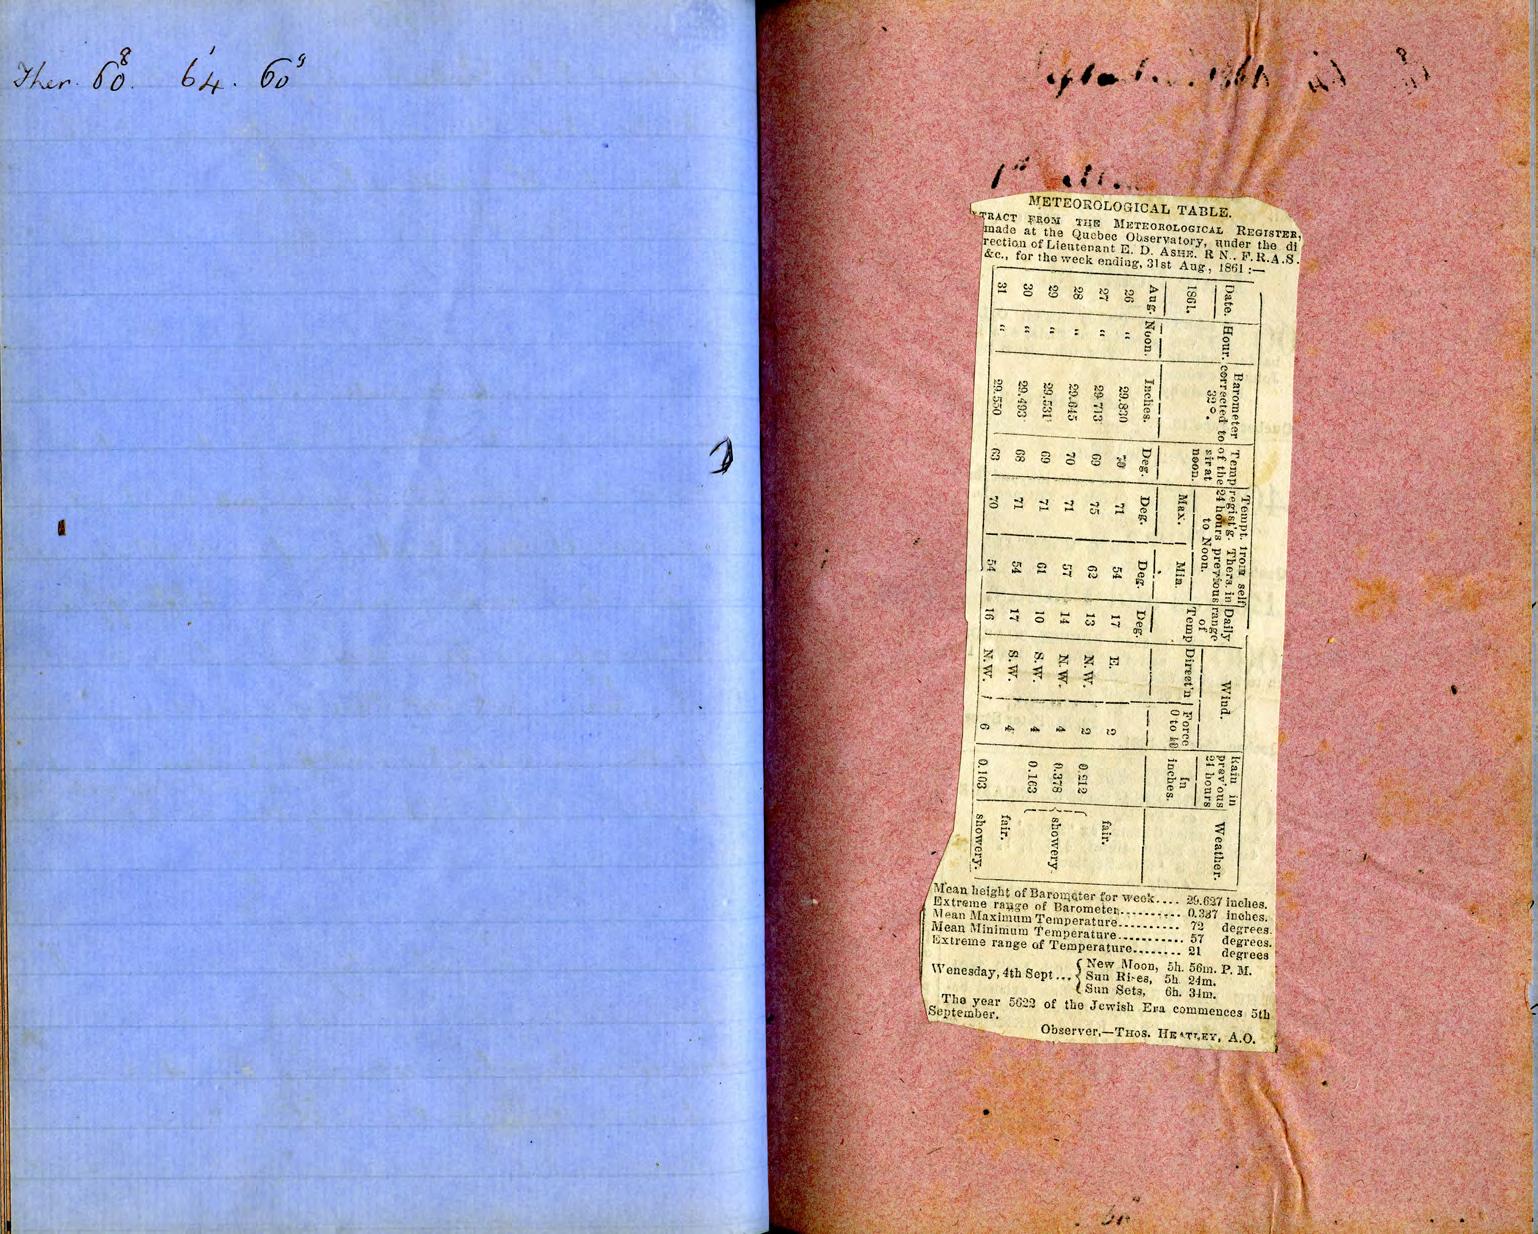 Ther. 60⁸. 64¹. 60⁹
METEOROLOGICAL TABLE.
TRACT FROM THE METEOROLOGICAL REGISTER,
made at the Quebec Observatory, under the di
rection of Lieutenant E. D. ASHE. R N., F.R.A.S.
&c., for the week ending, 31st Aug., 1861 :—
Date. Hour. Barometer corrected to 32°. Temp of the air at noon. Tempt. from self regist'g. Thers. in 24 hours previous to Noon. Daily range of Temp Wind. Rain in prev'ous 24 hours Weather.
1861. Max. Min. Direct'n Force 0 to 10 In inches.
Aug. Noon. Inches. Deg. Deg. Deg. Deg.
26 " 29.830 70 71 54 17 E. 2
27 " 29.713 69 75 62 13 N.W. 2 0.212 fair.
28 " 29.645 70 71 57 14 N.W. 4 0.378
29 " 29.531 69 71 61 10 S.W. 4 0.163 showery.
30 " 29.493 68 71 54 17 S.W. 4 fair.
31 " 29.550 63 70 54 16 N.W. 6 0.103 showery.
Mean height of Barometer for week.... 29.627 inches.
Extreme range of Barometer.......... 0.337 inches.
Mean Maximum Temperature.......... 72 degrees.
Mean Minimum Temperature........... 57 degrees.
Extreme range of Temperature........ 21 degrees
Wenesday, 4th Sept... { New Moon, 5h. 56m. P. M.
Sun Rises, 5h. 24m.
Sun Sets, 6h. 34m.
The year 5622 of the Jewish Era commences 5th
September.
Observer,—THOS. HEATLEY, A.O.